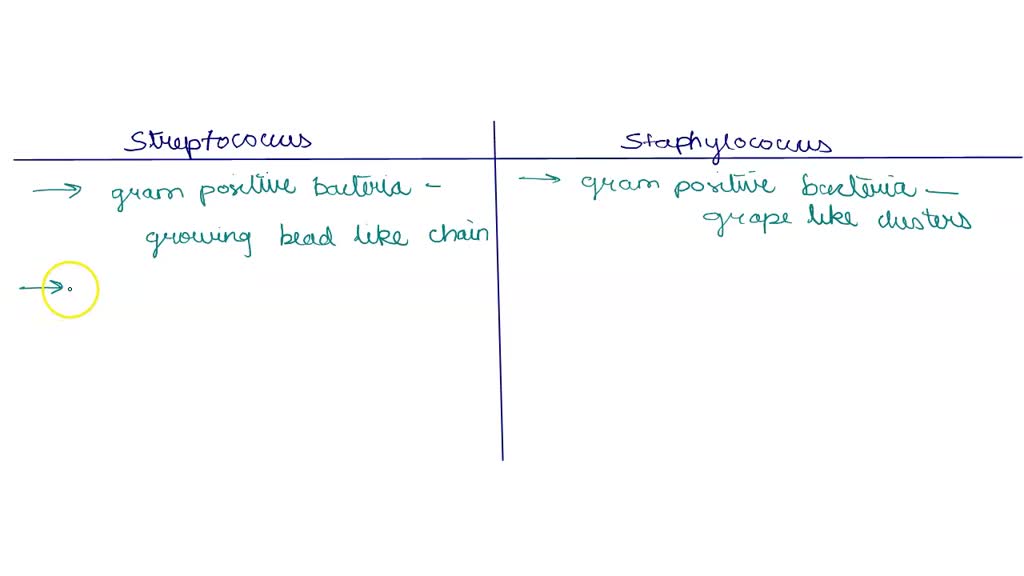 Streptococcus
Staphylococcus
→ gram positive bacteria -
growing bead like chain
→ gram positive bacteria —
grape like clusters
→